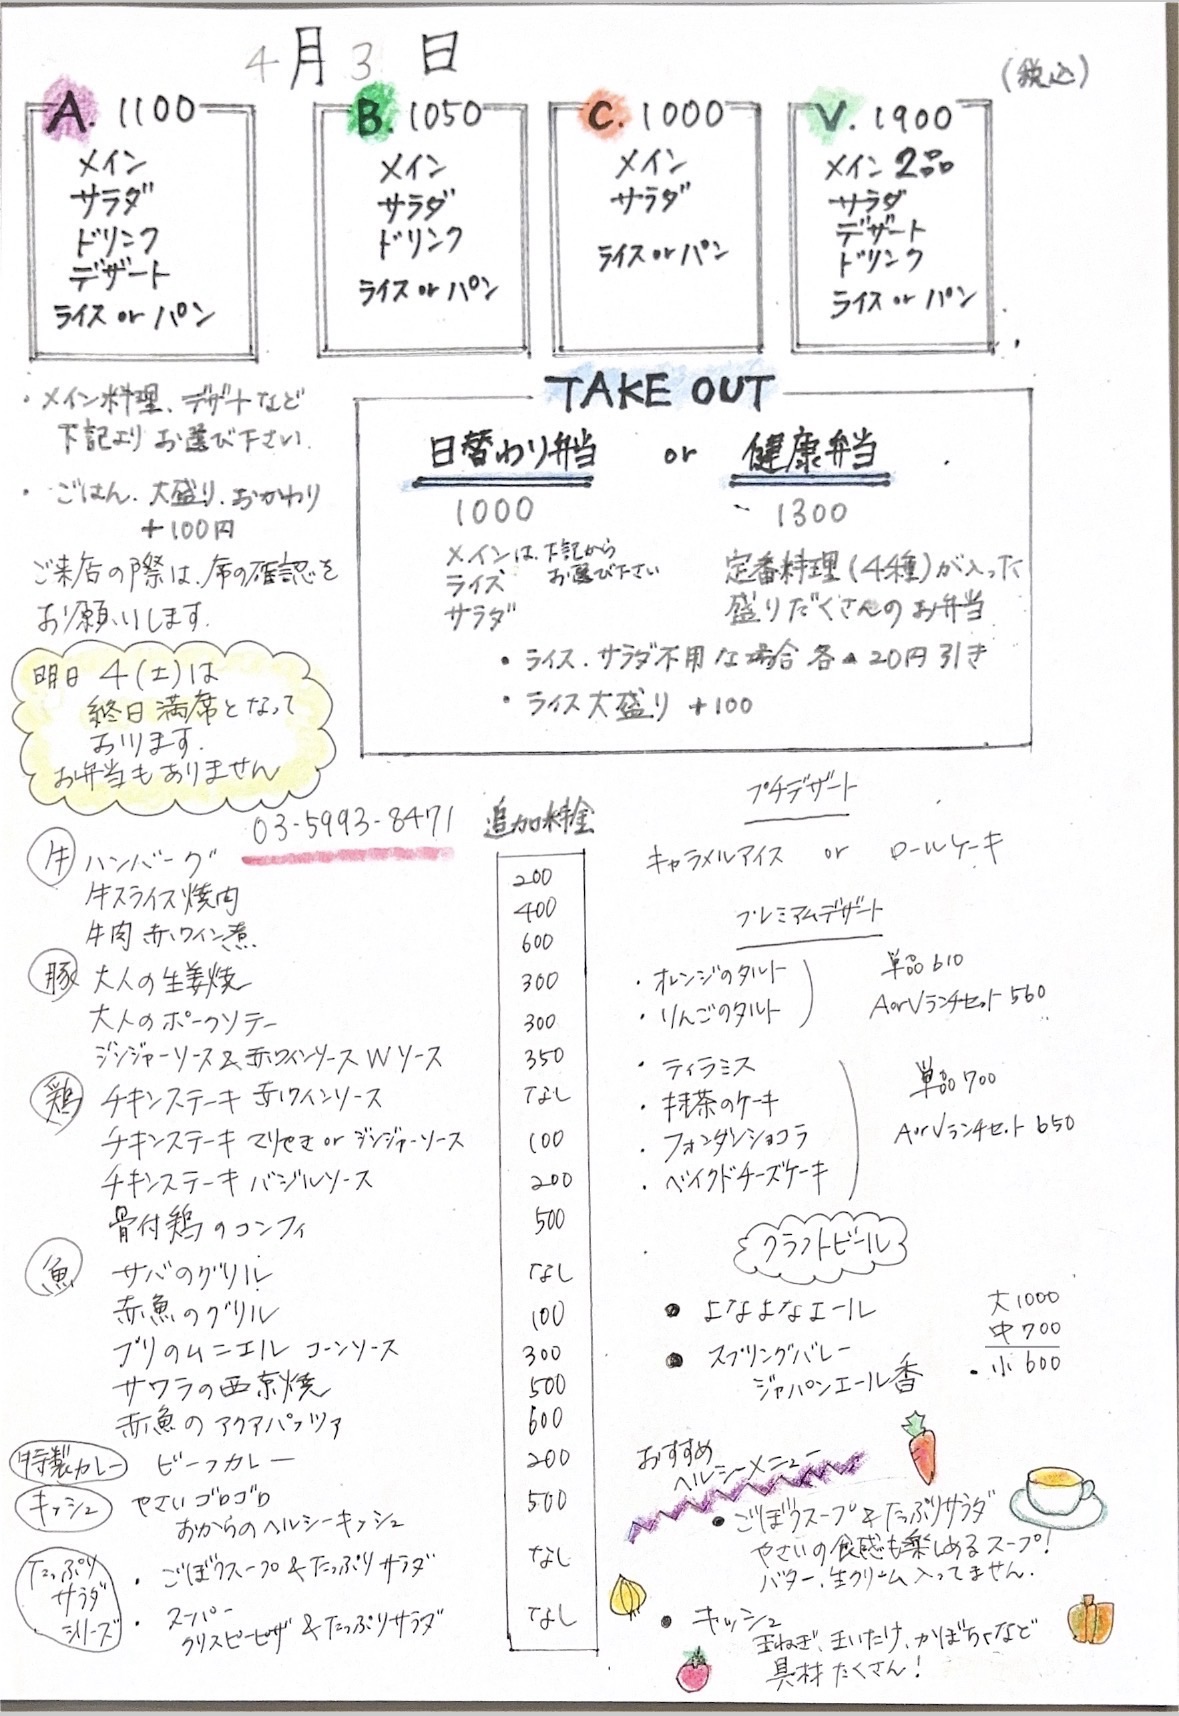 4月3日
(税込)
A. 1100
メイン
サラダ
ドリンク
デザート
ライス or パン
B. 1050
メイン
サラダ
ドリンク
ライス or パン
C. 1000
メイン
サラダ
ライス or パン
V. 1900
メイン 2品
サラダ
デザート
ドリンク
ライス or パン
・メイン料理、デザートなど
下記よりお選び下さい.
・ごはん.大盛り.おかわり
+100円
ご来店の際は、席の確認を
お願いします.
明日 4(土)は
終日満席となって
おります.
お弁当もありません
TAKE OUT
日替わり弁当 or 健康弁当
1000
メインは、下記から
お選び下さい
ライス
サラダ
1300
定番料理(4種)が入った
盛りだくさんのお弁当
・ライス.サラダ不用な場合 各▲20円引き
・ライス大盛り +100
03-5993-8471
追加料金
牛 ハンバーグ 200
牛スライス焼肉 400
牛肉 赤ワイン煮 600
豚 大人の生姜焼 300
大人のポークソテー 300
ジンジャーソース&赤ワインソース Wソース 350
鶏 チキンステーキ 赤ワインソース なし
チキンステーキ マリセキ or ジンジャーソース 100
チキンステーキ バジルソース 200
骨付鶏のコンフィ 500
魚 サバのグリル なし
赤魚のグリル 100
ブリのムニエル コーンソース 300
サワラの西京焼 500
赤魚のアクアパッツァ 600
特製カレー ビーフカレー 200
キッシュ やさいゴロゴロ 500
おからのヘルシーキッシュ
たっぷり
サラダ
シリーズ
・ごぼうスープ&たっぷりサラダ なし
・スーパー
クリスピーピザ&たっぷりサラダ なし
プチデザート
キャラメルアイス or ロールケーキ
プレミアムデザート
・オレンジのタルト
・りんごのタルト
単品610
AorVランチセット560
・ティラミス
・抹茶のケーキ
・フォンダンショコラ
・ベイクドチーズケーキ
単品700
AorVランチセット650
クラフトビール
● よなよなエール
● スプリングバレー
ジャパンエール香
大1000
中700
小600
おすすめ
ヘルシーメニュー
● ごぼうスープ&たっぷりサラダ
やさいの食感も楽しめるスープ!
バター、生クリーム入ってません.
● キッシュ
玉ねぎ、まいたけ、かぼちゃなど
具材たくさん!